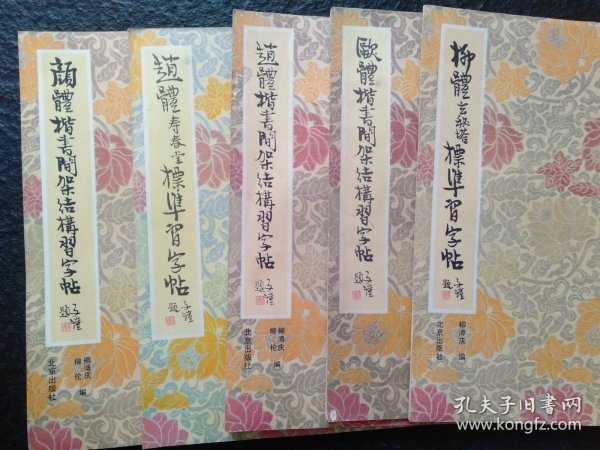 顔體楷書間架结構習字帖
子愷題
柳溥庆
柳伦 编
北京出版社
趙體壽春堂標準習字帖
子愷題
趙體楷書間架结構習字帖
子愷題
柳溥庆
柳伦 编
北京出版社
歐體楷書間架结構習字帖
子愷題
柳體玄秘塔標準習字帖
子愷題
柳溥庆 编
北京出版社
孔夫子旧书网
www.kongfz.com